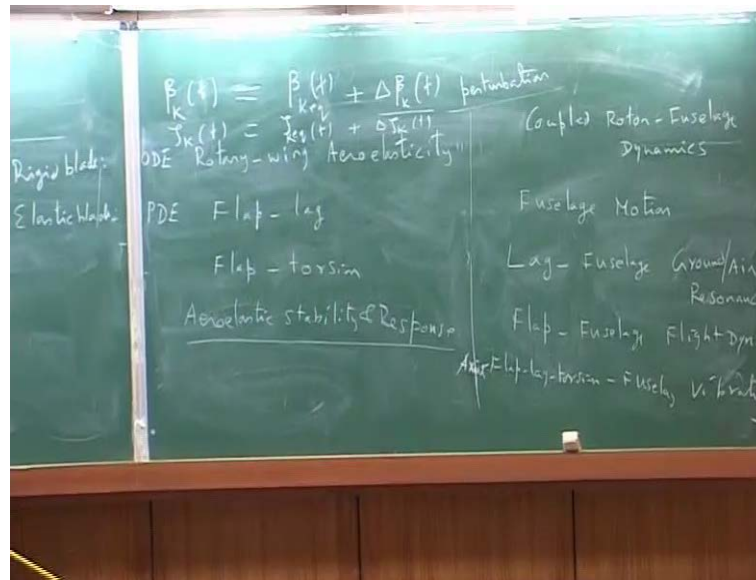 β_K(t) = β_Keq(t) + Δβ_K(t) perturbation
ζ_K(t) = ζ_eq(t) + Δζ_K(t)
Rigid blade: ODE Rotary-wing Aeroelasticity"
Elastic blade: PDE Flap-lag
Flap-torsion
Aeroelastic stability & Response
Coupled Rotor-Fuselage
Dynamics
Fuselage Motion
Lag-Fuselage Ground/Air
Resonanc
Flap-Fuselage Flight Dyn
Flap-lag-torsion-Fuselag Vibrati